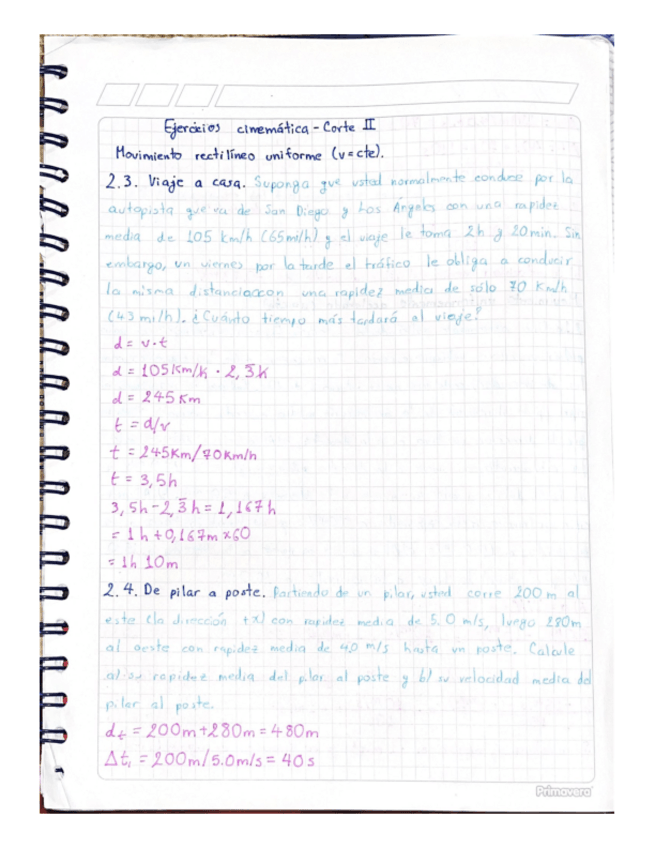 Ejercicios cinemática - Corte II
Movimiento rectilíneo uniforme (v = cte).
2.3. Viaje a casa. Suponga que usted normalmente conduce por la
autopista que va de San Diego y Los Ángeles con una rapidez
media de 105 km/h (65mi/h) y el viaje le toma 2h y 20min. Sin
embargo, un viernes por la tarde el tráfico le obliga a conducir
la misma distancia con una rapidez media de sólo 70 Km/h
(43 mi/h). ¿Cuánto tiempo más tardará el viaje?
d = v·t
d = 105Km/h · 2,3̅h
d = 245 Km
t = d/v
t = 245Km/70Km/h
t = 3,5h
3,5h - 2,3̅h = 1,167h
= 1h + 0,167m x60
= 1h 10m
2.4. De pilar a poste. Partiendo de un pilar, usted corre 200 m al
este (la dirección +x) con rapidez media de 5.0 m/s, luego 280m
al oeste con rapidez media de 4.0 m/s hasta un poste. Calcule
a) su rapidez media del pilar al poste y b) su velocidad media del
pilar al poste.
dt = 200m + 280m = 480m
Δt₁ = 200m/5.0m/s = 40s
Primavera